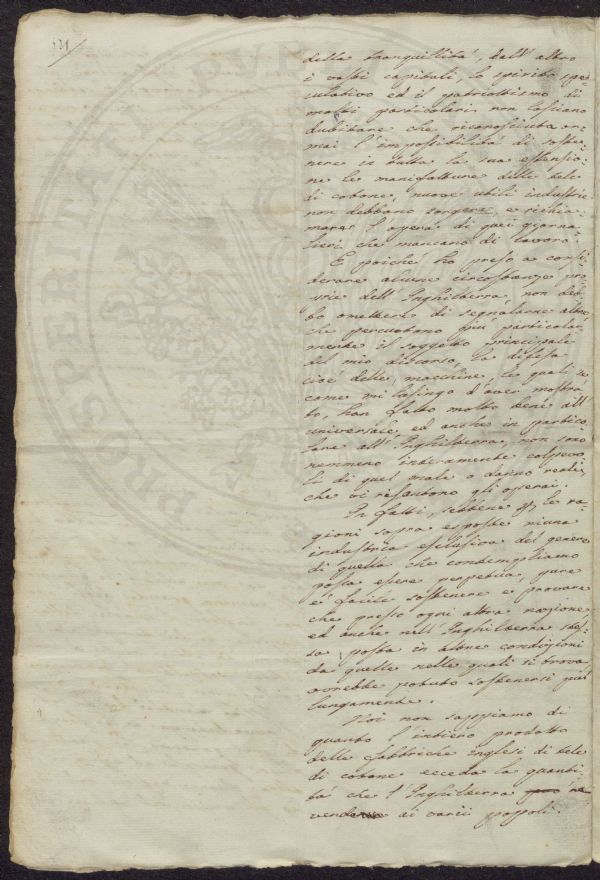 121
della tranquillità, dall' altro
i vasti capitali, lo spirito spe=
culativo ed il patriottismo di
molti particolari non lasciano
dubitare che riconosciuta or=
mai l'impossibilità di soste=
nere in tutta la sua estensio=
ne le manifatture delle tele
di cotone, nuove utili industrie
non debbano sorgere, e richia=
mare l'opera di quei giorna=
lieri che mancano di lavoro.
E poiché ho preso a consi=
derare alcune circostanze pro=
prie dell'Inghilterra, non deb=
bo omettere di segnalarne altre,
che percuotono più particolar=
mente il soggetto principale
del mio discorso, la difesa
cioè delle macchine, le quali se
come mi lusingo d'aver mostra=
to, han fatto molto bene all'
universale, ed anche in partico=
lare all'Inghilterra, non sono
nemmeno interamente colpevo=
li di quel male o danno reale,
che vi risentono gli operai.
In fatti, sebbene per le ra=
gioni sopra esposte niuna
industria esclusiva del genere
di quella che contempliamo
possa essere perpetua, pure
è facile sostenere e provare
che presso ogni altra nazione
ed anche nell'Inghilterra stes=
sa posta in altre condizioni
da quelle nelle quali si trova
avrebbe potuto sostenersi più
lungamente.
Noi non sappiamo di
quanto l'intiero prodotto
delle fabbriche inglesi di tele
di cotone ecceda la quanti=
tà che l'Inghilterra
vende ai varii popoli.
PROSPERITATI PVB